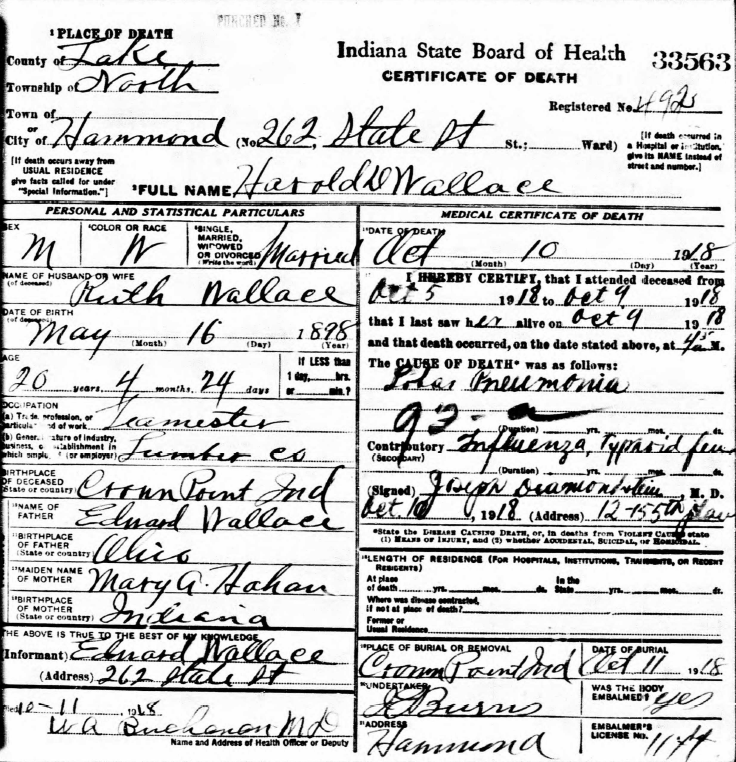 PUNCHED No. 7
¹PLACE OF DEATH
County of Lake
Township of North
Town of
or
City of Hammond (No. 262, State St St.; Ward)
Indiana State Board of Health 33563
CERTIFICATE OF DEATH
Registered No. 492
[If death occurred in a Hospital or institution, give its NAME instead of street and number.]
[If death occurs away from USUAL RESIDENCE give facts called for under "Special Information."]
²FULL NAME Harold D Wallace
PERSONAL AND STATISTICAL PARTICULARS
SEX M
⁴COLOR OR RACE W
⁵SINGLE, MARRIED, WIDOWED OR DIVORCED (Write the word) Married
NAME OF HUSBAND OR WIFE (of deceased) Ruth Wallace
DATE OF BIRTH (of deceased)
May 16 1898
(Month) (Day) (Year)
AGE
20 years, 4 months, 24 days
If LESS than 1 day, hrs. or min.?
OCCUPATION
(a) Trade, profession, or particular kind of work Teamester
(b) General nature of industry, business, or establishment in which employed (or employer) Lumber Co
BIRTHPLACE OF DECEASED (State or country) Crown Point Ind
¹⁰NAME OF FATHER Edward Wallace
¹¹BIRTHPLACE OF FATHER (State or country) Ohio
¹²MAIDEN NAME OF MOTHER Mary A. Hahan
¹³BIRTHPLACE OF MOTHER (State or country) Indiana
THE ABOVE IS TRUE TO THE BEST OF MY KNOWLEDGE
(Informant) Edward Wallace
(Address) 262 State St
Filed 10-11 1918
W A Buchanan M D
Name and Address of Health Officer or Deputy
MEDICAL CERTIFICATE OF DEATH
DATE OF DEATH
Oct 10 1918
(Month) (Day) (Year)
I HEREBY CERTIFY, that I attended deceased from
Oct 5 1918 to Oct 9 1918
that I last saw her alive on Oct 9 1918
and that death occurred, on the date stated above, at 4 M.
The CAUSE OF DEATH* was as follows:
Lobar Pneumonia
92-a
(Duration) yrs. mos. ds.
Contributory Influenza, Typhoid fever
(SECONDARY)
(Duration) yrs. mos. ds.
(Signed) Joseph Diamondstein, M. D.
Oct 10, 1918 (Address) 12-155th
*State the DISEASE CAUSING DEATH, or, in deaths from VIOLENT CAUSES state
(1) MEANS OF INJURY, and (2) whether ACCIDENTAL, SUICIDAL, or HOMICIDAL.
LENGTH OF RESIDENCE (FOR HOSPITALS, INSTITUTIONS, TRANSIENTS, OR RECENT RESIDENTS)
At place of death yrs. mos. ds. In the State yrs. mos. ds.
Where was disease contracted, if not at place of death?
Former or Usual Residence
PLACE OF BURIAL OR REMOVAL
Crown Point Ind
DATE OF BURIAL
Oct 11 1918
UNDERTAKER
Burns
WAS THE BODY EMBALMED? yes
ADDRESS
Hammond
EMBALMER'S LICENSE No. 1144